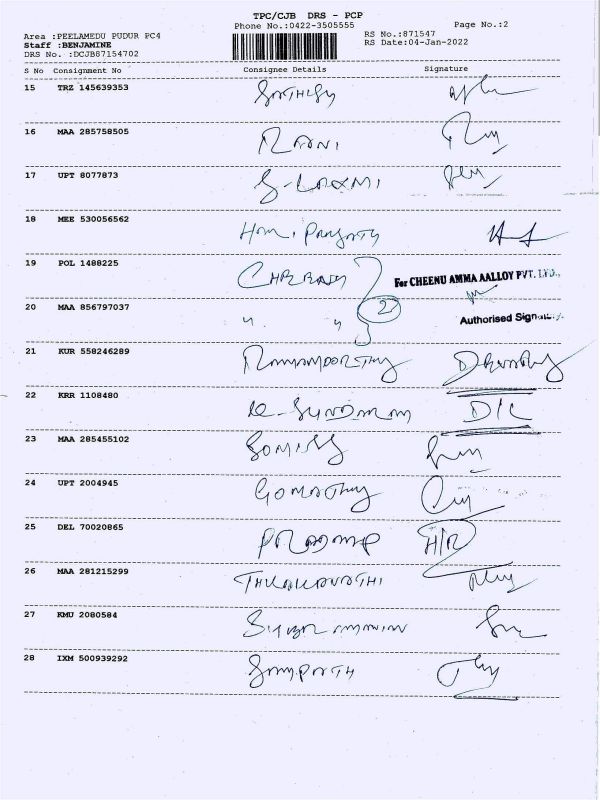 TPC/CJB DRS - PCP
Phone No.:0422-3505555 Page No.:2
Area :PEELAMEDU PUDUR PC4 RS No.:871547
Staff :BENJAMINE RS Date:04-Jan-2022
DRS No. :DCJB87154702
S No Consignment No Consignee Details Signature
15 TRZ 145639353 SATHISH
16 MAA 285758505 RANI
17 UPT 8077873 S-LAXMI
18 MEE 530056562
19 POL 1488225 For CHEENU AMMA AALLOY PVT. LTD.,
20 MAA 856797037 " " 2 Authorised Signatory
21 KUR 558246289 RAMAMOORTHY
22 KRR 1108480 K-SUNDARAM D/C
23 MAA 285455102
24 UPT 2004945 GOMATHY
25 DEL 70020865 PRADEEP H/R
26 MAA 281215299 THILAKAVATHI
27 KMU 2080584
28 IXM 500939292 SAMPATH